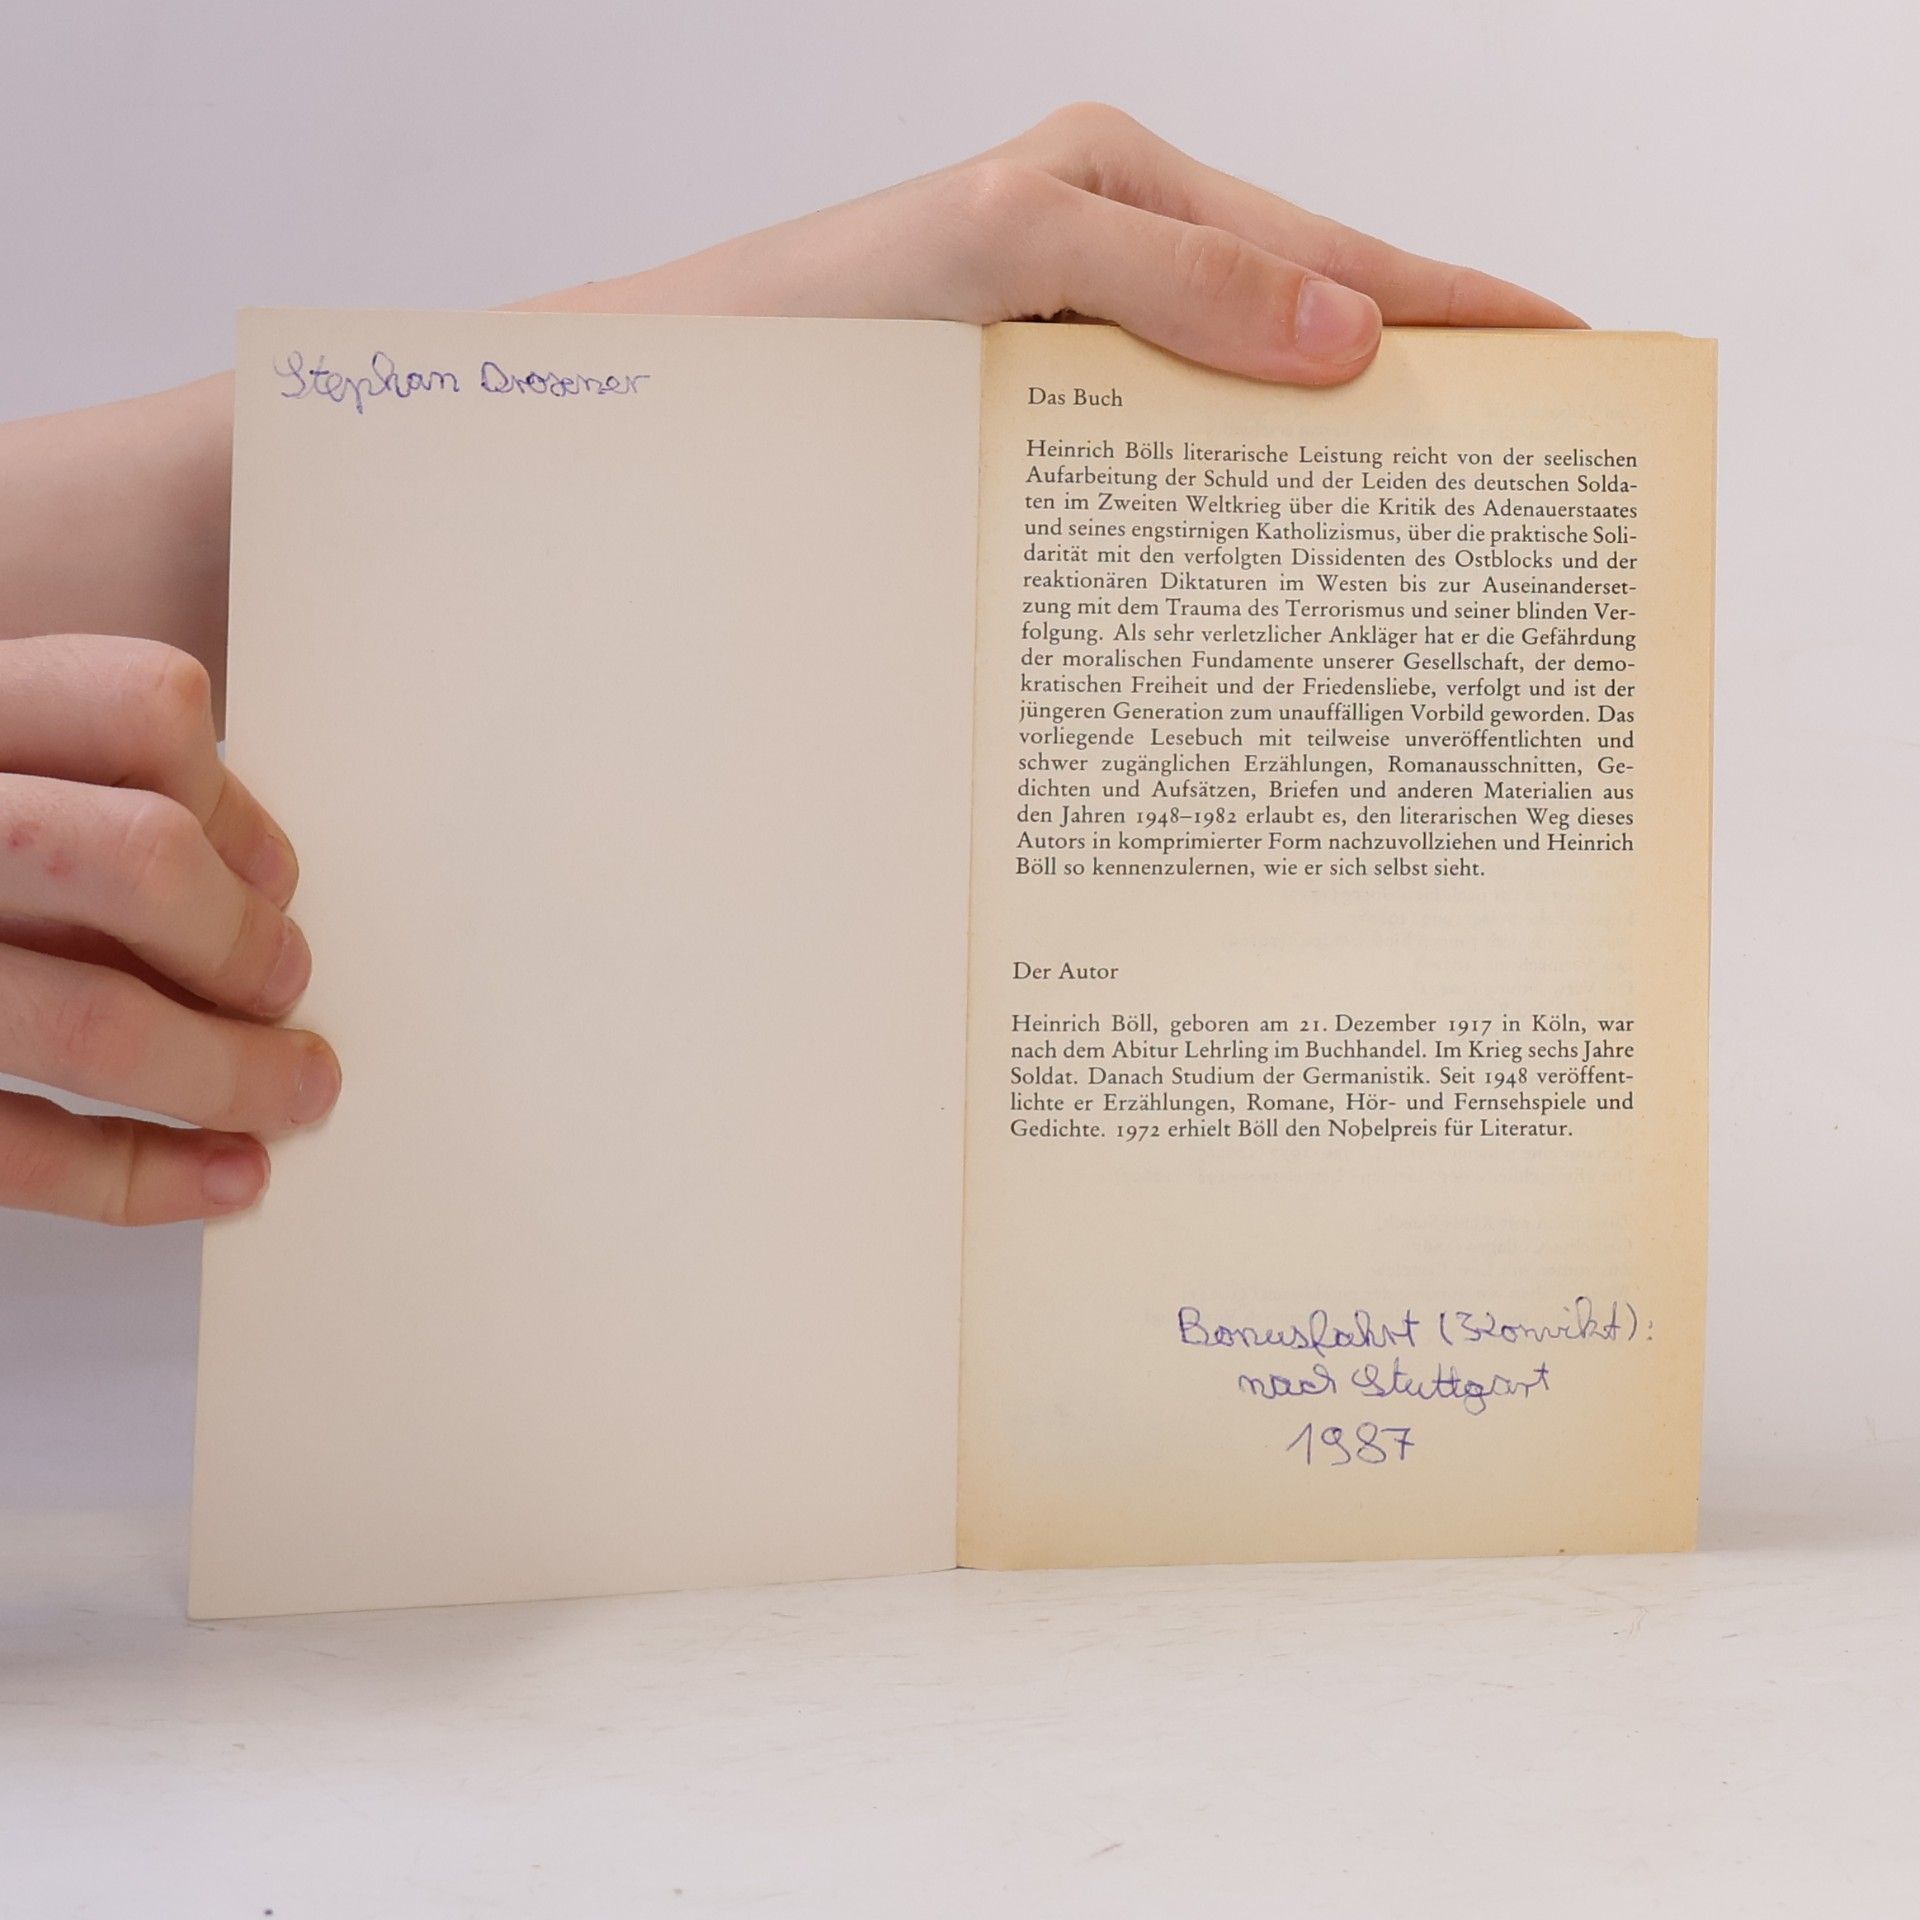 Stephan Drosener
Das Buch
Heinrich Bölls literarische Leistung reicht von der seelischen
Aufarbeitung der Schuld und der Leiden des deutschen Solda-
ten im Zweiten Weltkrieg über die Kritik des Adenauerstaates
und seines engstirnigen Katholizismus, über die praktische Soli-
darität mit den verfolgten Dissidenten des Ostblocks und der
reaktionären Diktaturen im Westen bis zur Auseinanderset-
zung mit dem Trauma des Terrorismus und seiner blinden Ver-
folgung. Als sehr verletzlicher Ankläger hat er die Gefährdung
der moralischen Fundamente unserer Gesellschaft, der demo-
kratischen Freiheit und der Friedensliebe, verfolgt und ist der
jüngeren Generation zum unauffälligen Vorbild geworden. Das
vorliegende Lesebuch mit teilweise unveröffentlichten und
schwer zugänglichen Erzählungen, Romanausschnitten, Ge-
dichten und Aufsätzen, Briefen und anderen Materialien aus
den Jahren 1948–1982 erlaubt es, den literarischen Weg dieses
Autors in komprimierter Form nachzuvollziehen und Heinrich
Böll so kennenzulernen, wie er sich selbst sieht.
Der Autor
Heinrich Böll, geboren am 21. Dezember 1917 in Köln, war
nach dem Abitur Lehrling im Buchhandel. Im Krieg sechs Jahre
Soldat. Danach Studium der Germanistik. Seit 1948 veröffent-
lichte er Erzählungen, Romane, Hör- und Fernsehspiele und
Gedichte. 1972 erhielt Böll den Nobelpreis für Literatur.
Bonusfahrt (Konvikt):
nach Stuttgart
1987